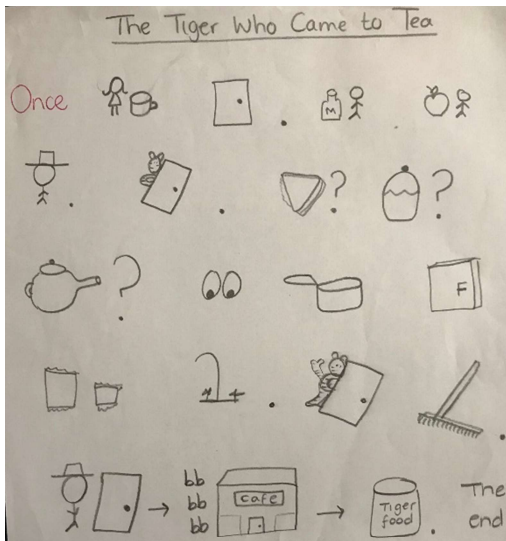 The Tiger Who Came to Tea
Once
M
? ?
?
F
bb
bb
bb
cafe
Tiger
food
The
end